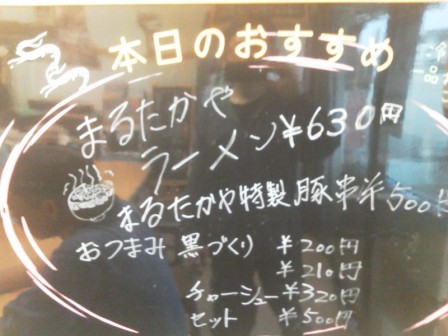 本日のおすすめ
まるたかや
ラーメン¥630円
まるたかや特製豚串¥500円
おつまみ 黒づくり ¥200円
¥210円
チャーシュー¥320円
セット ¥500円